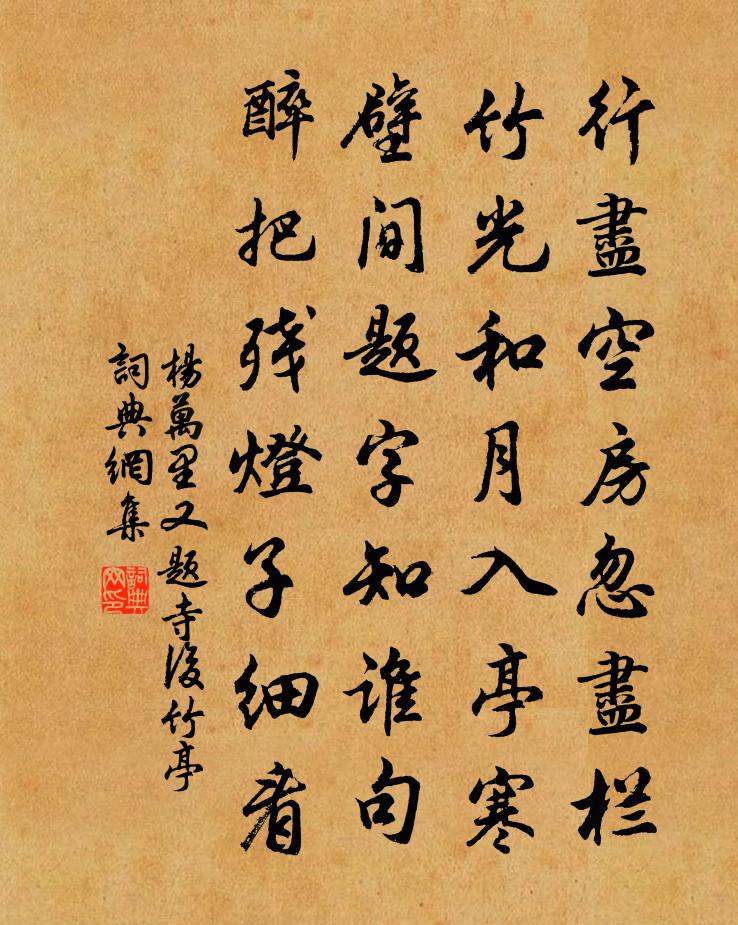 行盡空房忽盡栏
竹光和月入亭寒
壁间题字知谁句
醉把残燈子细看
楊萬里又题寺後竹亭
詞典網集
詞典网印